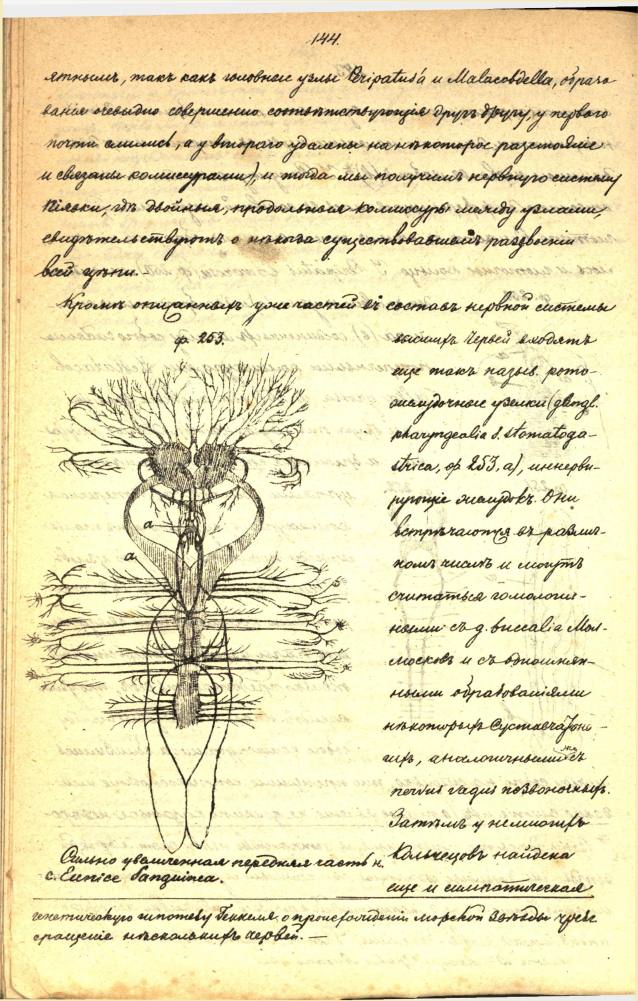 144.
ятнымъ, такъ какъ головные узлы Peripatus'а и Malacobdella, образо
ванія очевидно совершенно соотвѣтствующія другъ другу, у перваго
почти слились, а у втораго удалены на нѣкоторое разстояніе
и связаны комиссурами), и тогда мы получимъ нервную систему
піявки, гдѣ двойныя, продольныя комиссуры между узлами,
свидѣтельствуютъ о нѣкогда существовавшемъ раздвоеніи
всей цѣпи. —
Кромѣ описанныхъ уже частей въ составъ нервной системы
ф. 253.
высшихъ Червей входятъ
еще такъ назыв. рото-
желудочные узелки (gangl.
pharyngealia s. stomatoga-
strica, ф. 253, а), иннерви-
рующіе желудокъ. Они
встрѣчаются въ различ-
номъ числѣ и могутъ
считаться гомологич-
ными съ g. buccalia Мол-
люсковъ и съ одноимен-
ными образованіями
нѣкоторыхъ Суставчатоно-
гихъ, аналогичными съ
nervus vagus позвоночныхъ.
Затѣмъ у немногихъ
Кольчецовъ найдена
еще и симпатическая
a
a
Сильно увеличенная передняя часть н.
с. Eunice Sanguinea.
генетическую гипотезу Геккеля о происхожденіи морской звѣзды чрезъ
сращеніе нѣсколькихъ червей. —